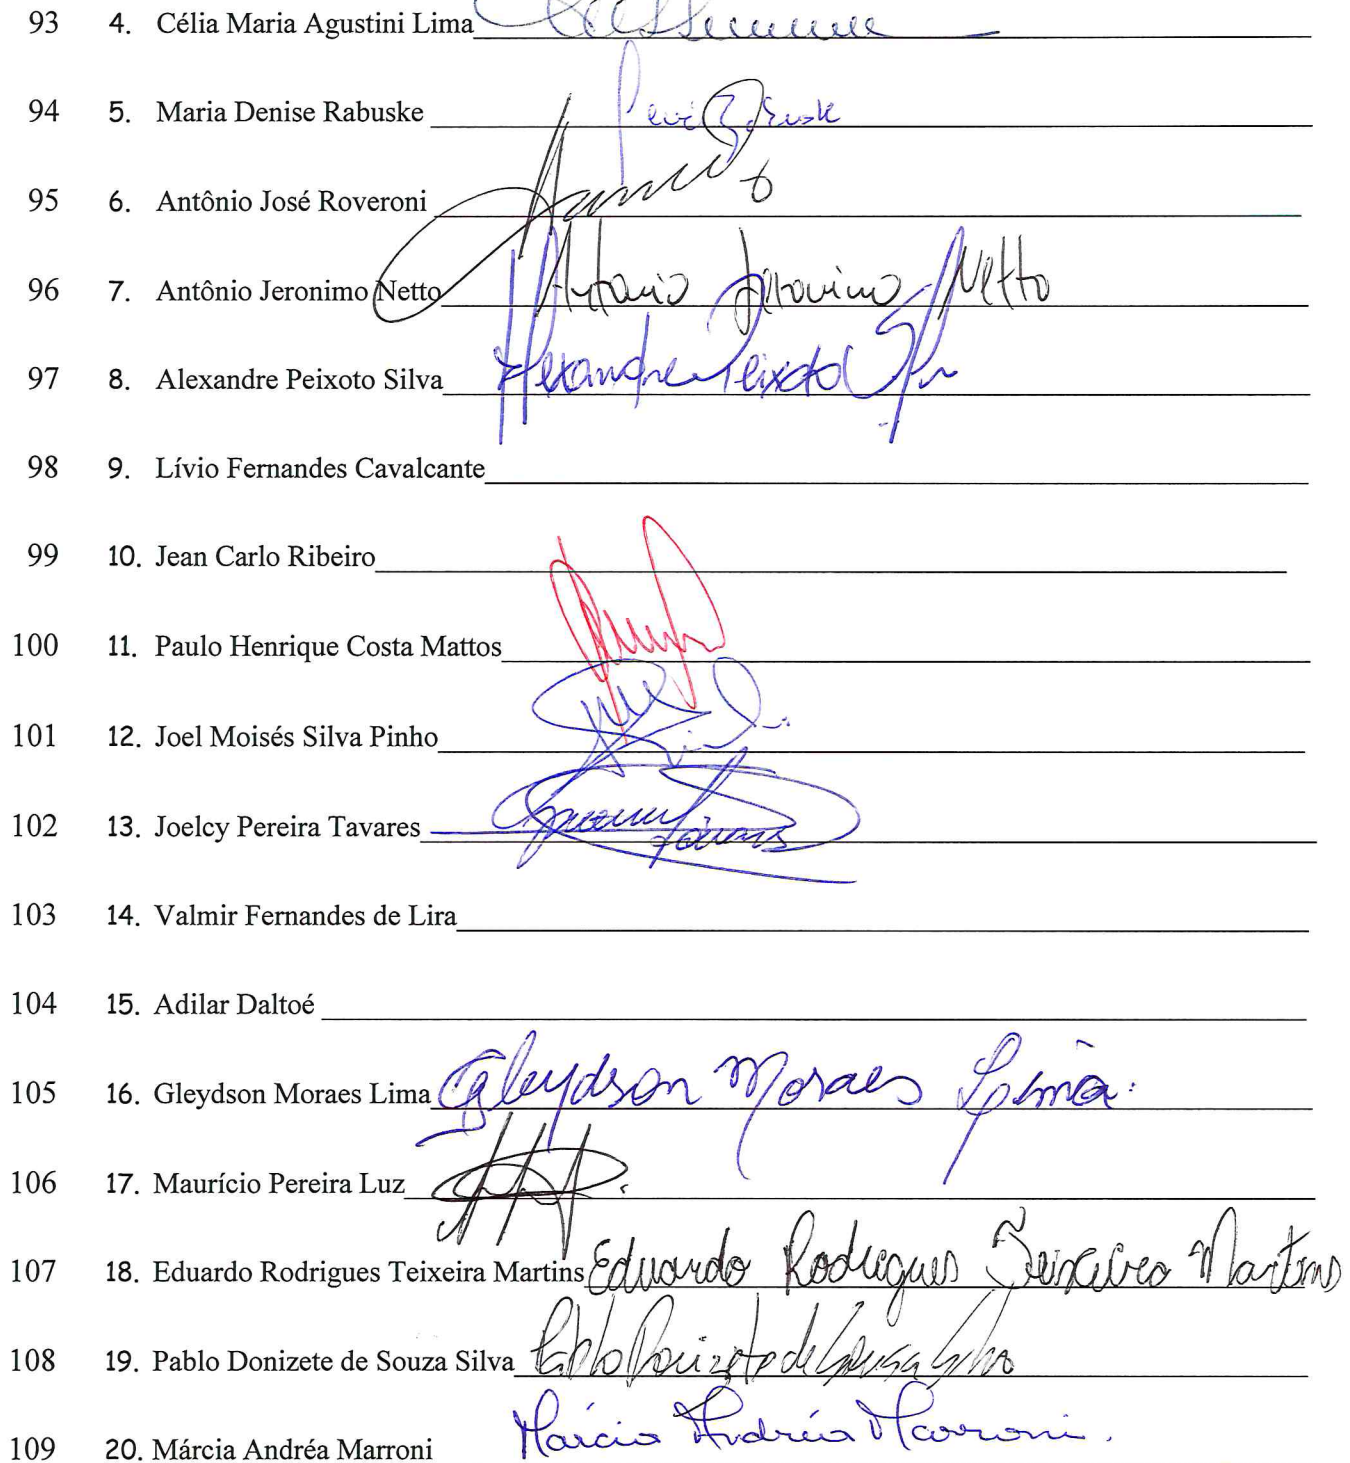 93 4. Célia Maria Agustini Lima
94 5. Maria Denise Rabuske
95 6. Antônio José Roveroni
96 7. Antônio Jeronimo Netto Antonio Jeronimo Netto
97 8. Alexandre Peixoto Silva Alexandre Peixoto Silva
98 9. Lívio Fernandes Cavalcante
99 10. Jean Carlo Ribeiro
100 11. Paulo Henrique Costa Mattos
101 12. Joel Moisés Silva Pinho
102 13. Joelcy Pereira Tavares
103 14. Valmir Fernandes de Lira
104 15. Adilar Daltoé
105 16. Gleydson Moraes Lima Gleydson Moraes Lima
106 17. Maurício Pereira Luz
107 18. Eduardo Rodrigues Teixeira Martins Eduardo Rodrigues Teixeira Martins
108 19. Pablo Donizete de Souza Silva Pablo Donizete de Sousa Silva
109 20. Márcia Andréa Marroni Márcia Andréa Marroni.